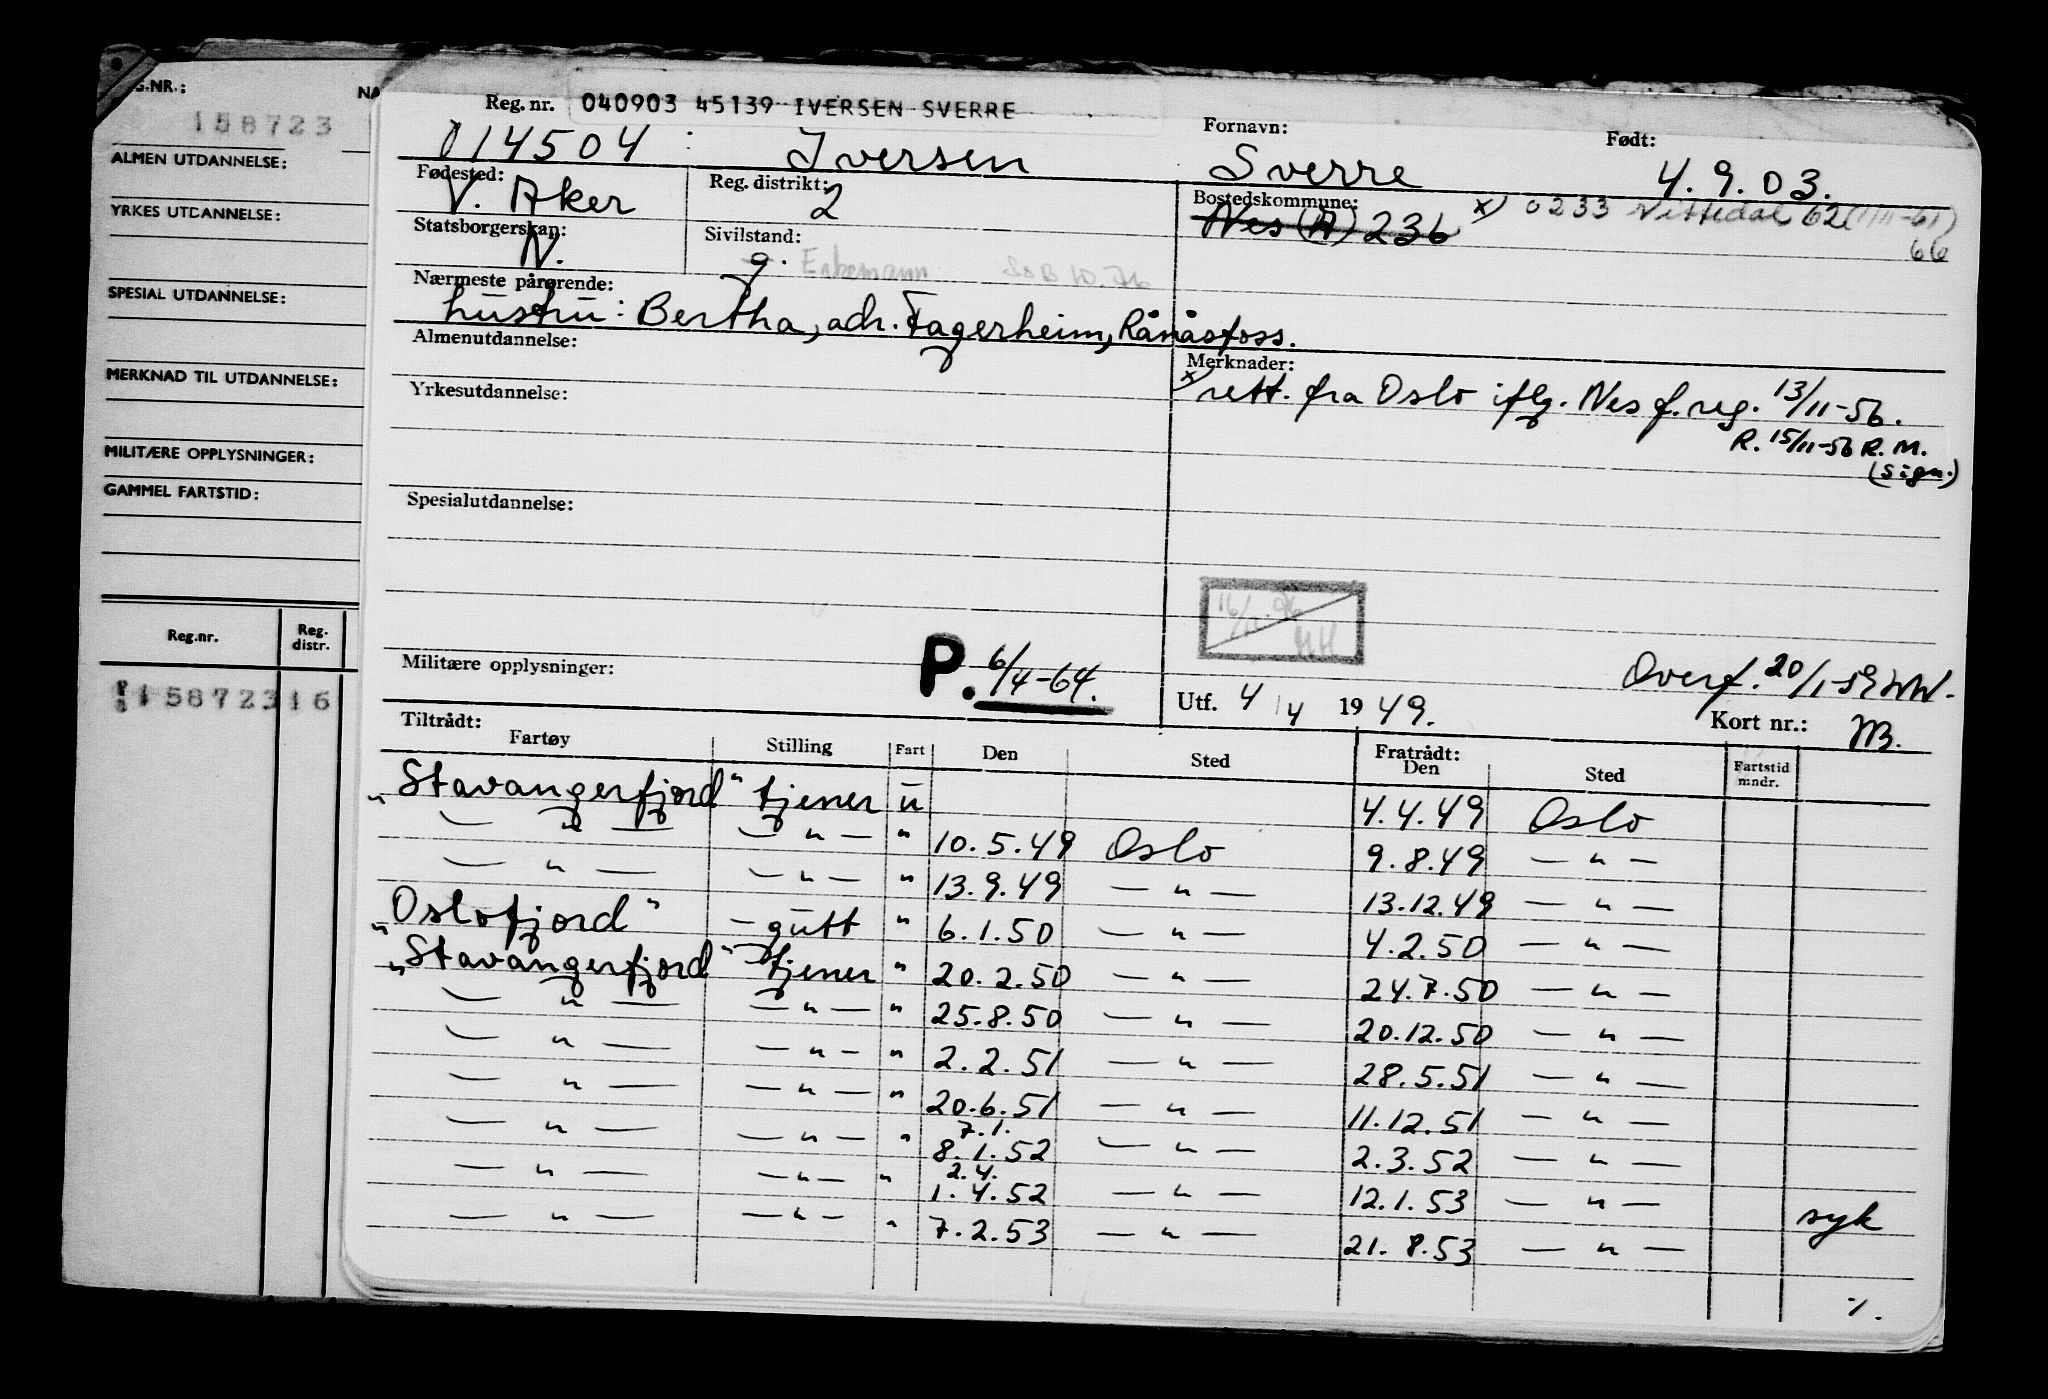 G.NR.:
NA
158723
ALMEN UTDANNELSE:
YRKES UTDANNELSE:
SPESIAL UTDANNELSE:
MERKNAD TIL UTDANNELSE:
MILITÆRE OPPLYSNINGER:
GAMMEL FARTSTID:
Reg.nr. Reg. distr.
158723 16
Reg. nr. 040903 45139 IVERSEN SVERRE
Fornavn: Født:
114504 : Iversen Sverre 4.9.03.
Fødested: Reg. distrikt: Bostedskommune:
V. Aker 2 Nes (A) 236 x) 0233 Nittedal 62 (1/11-61)
66
Statsborgerskap: Sivilstand:
N. g. Enkemann
Nærmeste pårørende:
hustru: Bertha, adr. Fagerheim, Rånåsfoss.
Almenutdannelse: Merknader:
x) rett. fra Oslo iflg. Nes f.reg. 13/11-56.
Yrkesutdannelse:
R. 15/11-56 R. M.
(sign.)
Spesialutdannelse:
Militære opplysninger: P. 6/4-64.
Overf. 20/1-59
Utf. 4/4 1949. Kort nr.:
Tiltrådt: Fratrådt:
Fartøy Stilling Fart Den Sted Den Sted Fartstid mndr.
"Stavangerfjord" tjener u 4.4.49 Oslo
— " — — " — " 10.5.49 Oslo 9.8.49 — " —
— " — — " — " 13.9.49 — " — 13.12.49 — " —
"Oslofjord" — gutt " 6.1.50 — " — 4.2.50 — " —
"Stavangerfjord" tjener " 20.2.50 — " — 24.7.50 — " —
— " — — " — " 25.8.50 — " — 20.12.50 — " —
— " — — " — " 2.2.51 — " — 28.5.51 — " —
— " — — " — " 20.6.51 — " — 11.12.51 — " —
7.1.
— " — — " — " 8.1.52 — " — 2.3.52 — " —
2.4.
— " — — " — " 1.4.52 — " — 12.1.53 — " — syk
— " — — " — " 7.2.53 — " — 21.8.53 — " —
./.